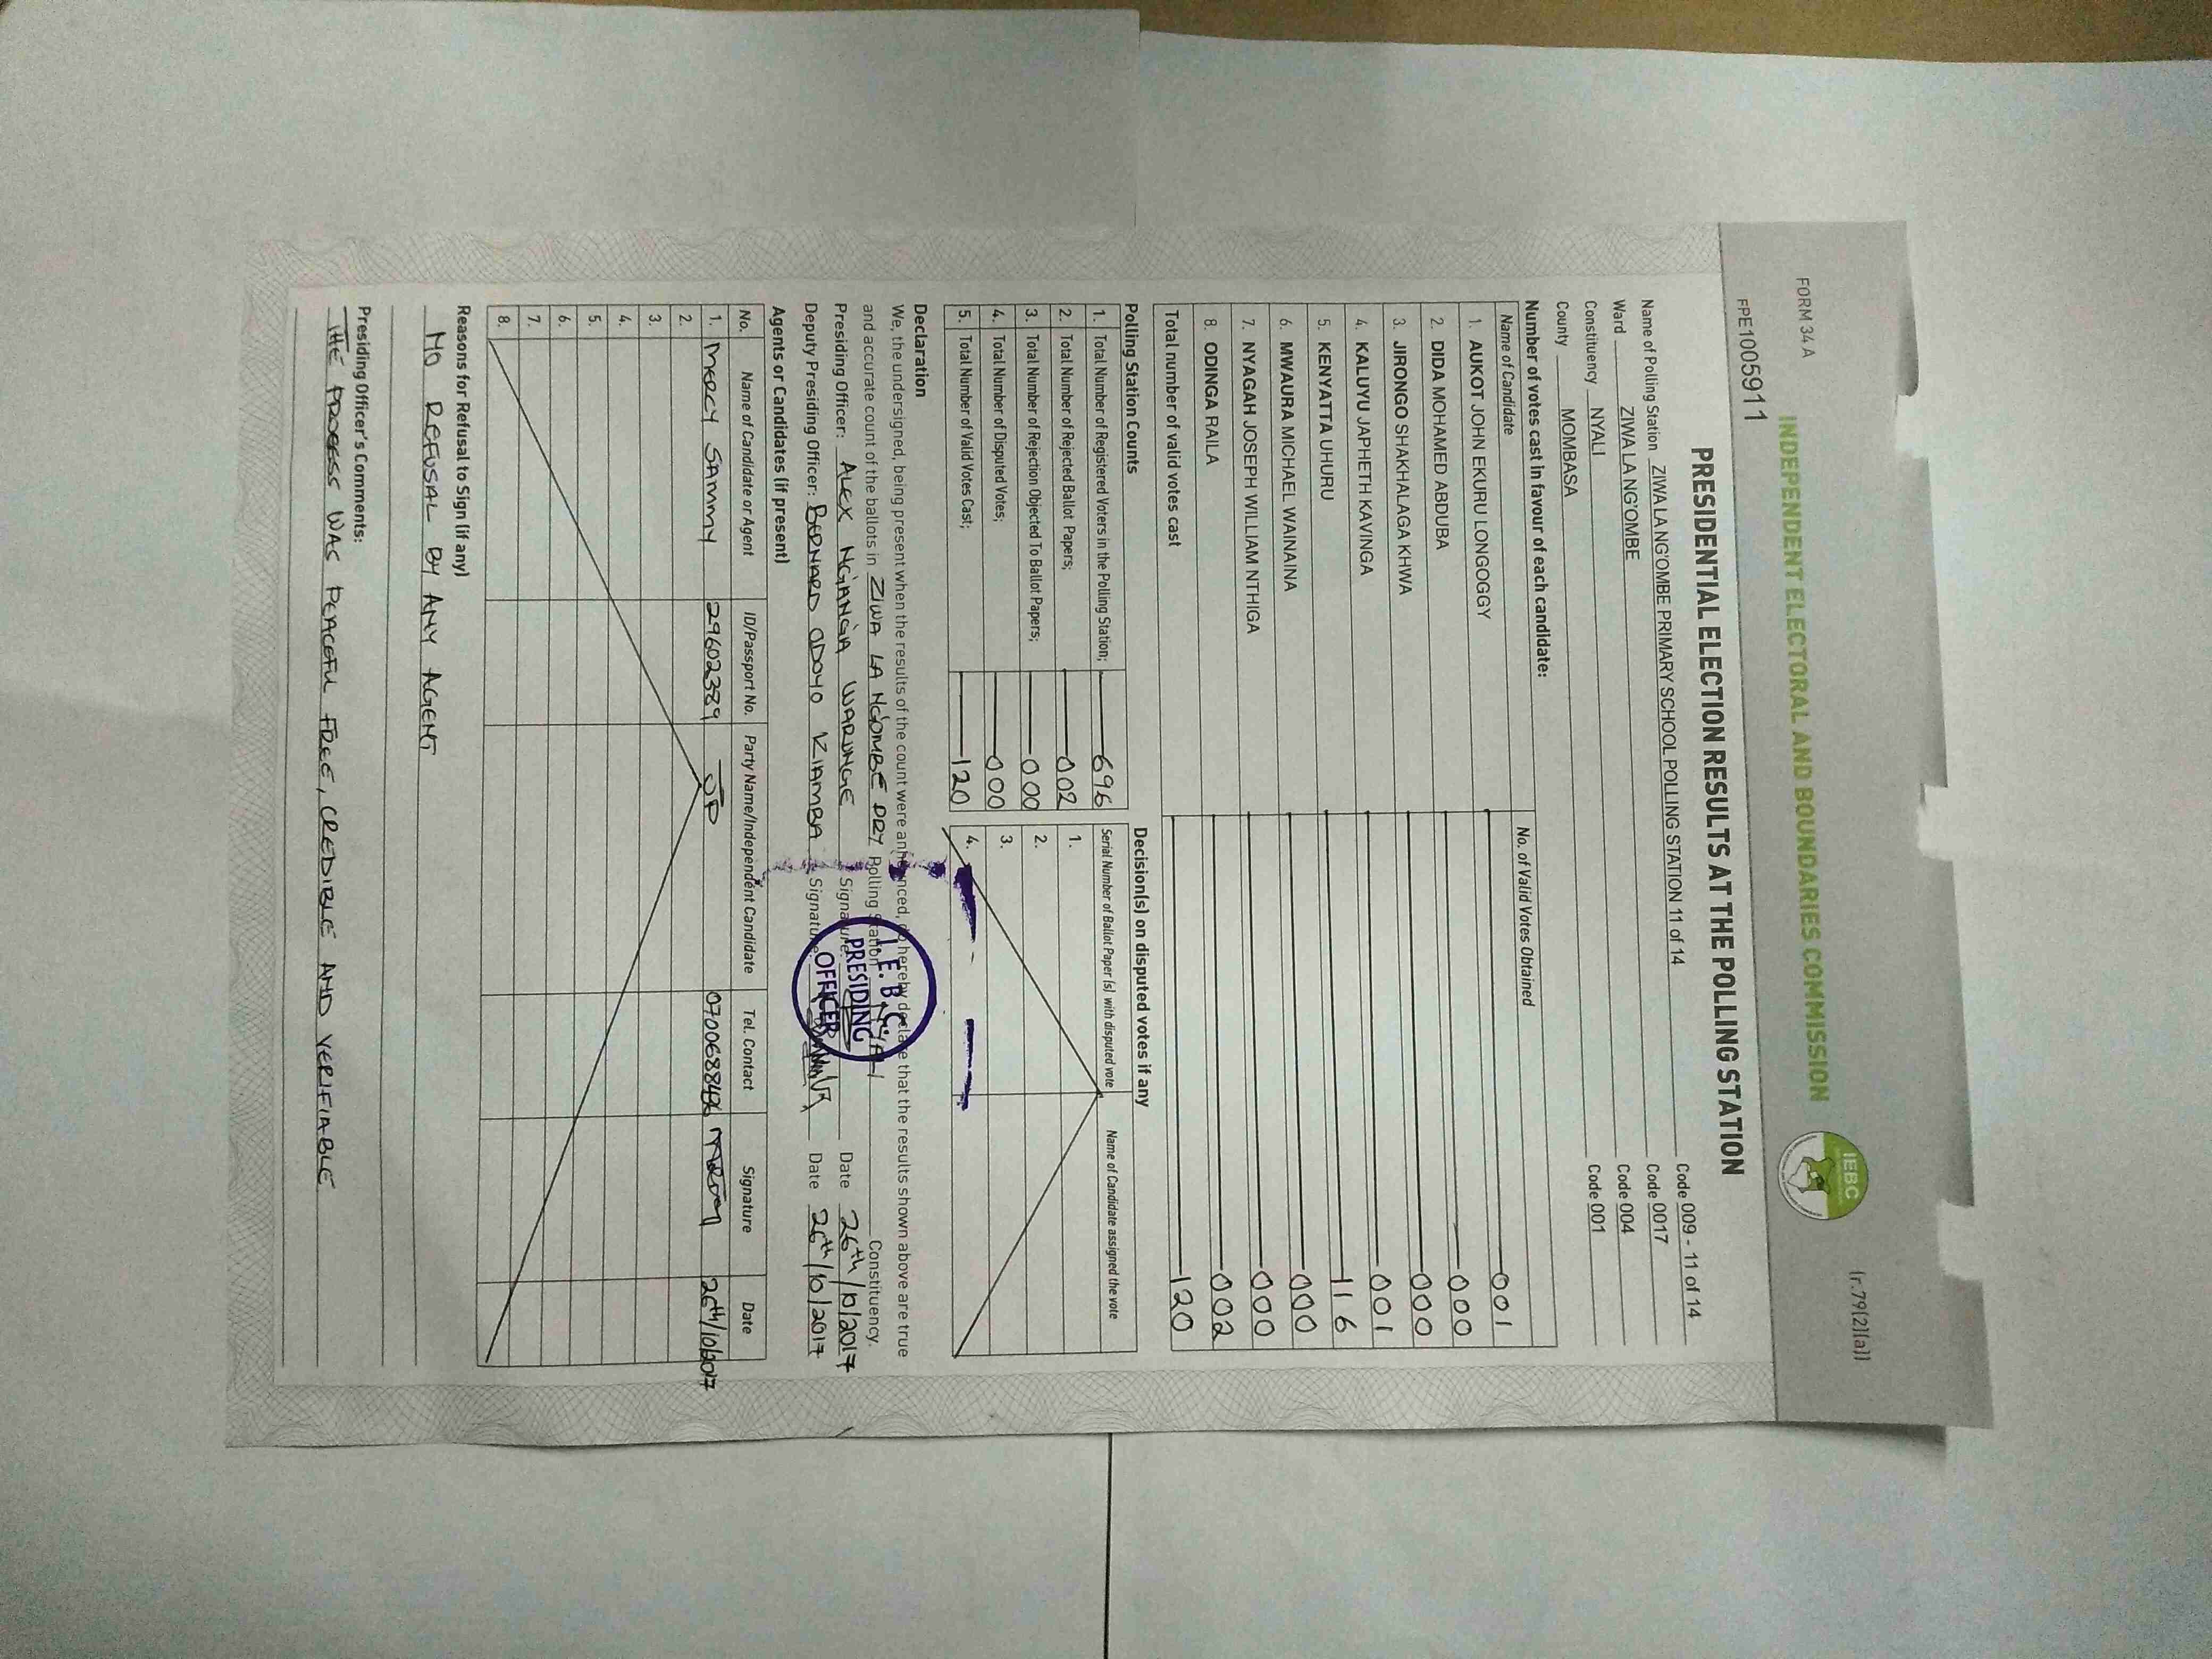 FORM 34 A
(r.79(2)(a))
INDEPENDENT ELECTORAL AND BOUNDARIES COMMISSION
IEBC
FPE1005911
PRESIDENTIAL ELECTION RESULTS AT THE POLLING STATION
Name of Polling Station ZIWA LA NG'OMBE PRIMARY SCHOOL POLLING STATION 11 of 14 Code 009 - 11 of 14
Ward ZIWA LA NG'OMBE Code 0017
Constituency NYALI Code 004
County MOMBASA Code 001
Number of votes cast in favour of each candidate:
Name of Candidate No. of Valid Votes Obtained
1. AUKOT JOHN EKURU LONGOGGY 001
2. DIDA MOHAMED ABDUBA 000
3. JIRONGO SHAKHALAGA KHWA 000
4. KALUYU JAPHETH KAVINGA 001
5. KENYATTA UHURU 116
6. MWAURA MICHAEL WAINAINA 000
7. NYAGAH JOSEPH WILLIAM NTHIGA 000
8. ODINGA RAILA 002
Total number of valid votes cast 120
Polling Station Counts
1. Total Number of Registered Voters in the Polling Station; 696
2. Total Number of Rejected Ballot Papers; 002
3. Total Number of Rejection Objected To Ballot Papers; 000
4. Total Number of Disputed Votes; 000
5. Total Number of Valid Votes Cast; 120
Decision(s) on disputed votes if any
Serial Number of Ballot Paper (s) with disputed vote Name of Candidate assigned the vote
1.
2.
3.
4.
Declaration
We, the undersigned, being present when the results of the count were announced, do hereby declare that the results shown above are true
and accurate count of the ballots in ZIWA LA NGOMBE PRY Polling Station NYALI Constituency.
Presiding Officer: ALEX NGIANGIA WARUNGE Signature: Date 26th/10/2017
Deputy Presiding Officer: BERNARD ODOYO KIAMBA Signature: Date 26th/10/2017
I.E.B.C.
PRESIDING
OFFICER
Agents or Candidates (if present)
No. Name of Candidate or Agent ID/Passport No. Party Name/Independent Candidate Tel. Contact Signature Date
1. MERCY SAMMY 29602389 JP 0700688486 26th/10/2017
2.
3.
4.
5.
6.
7.
8.
Reasons for Refusal to Sign (if any)
NO REFUSAL BY ANY AGENT
Presiding Officer's Comments:
THE PROCESS WAS PEACEFUL FREE, CREDIBLE AND VERIFIABLE